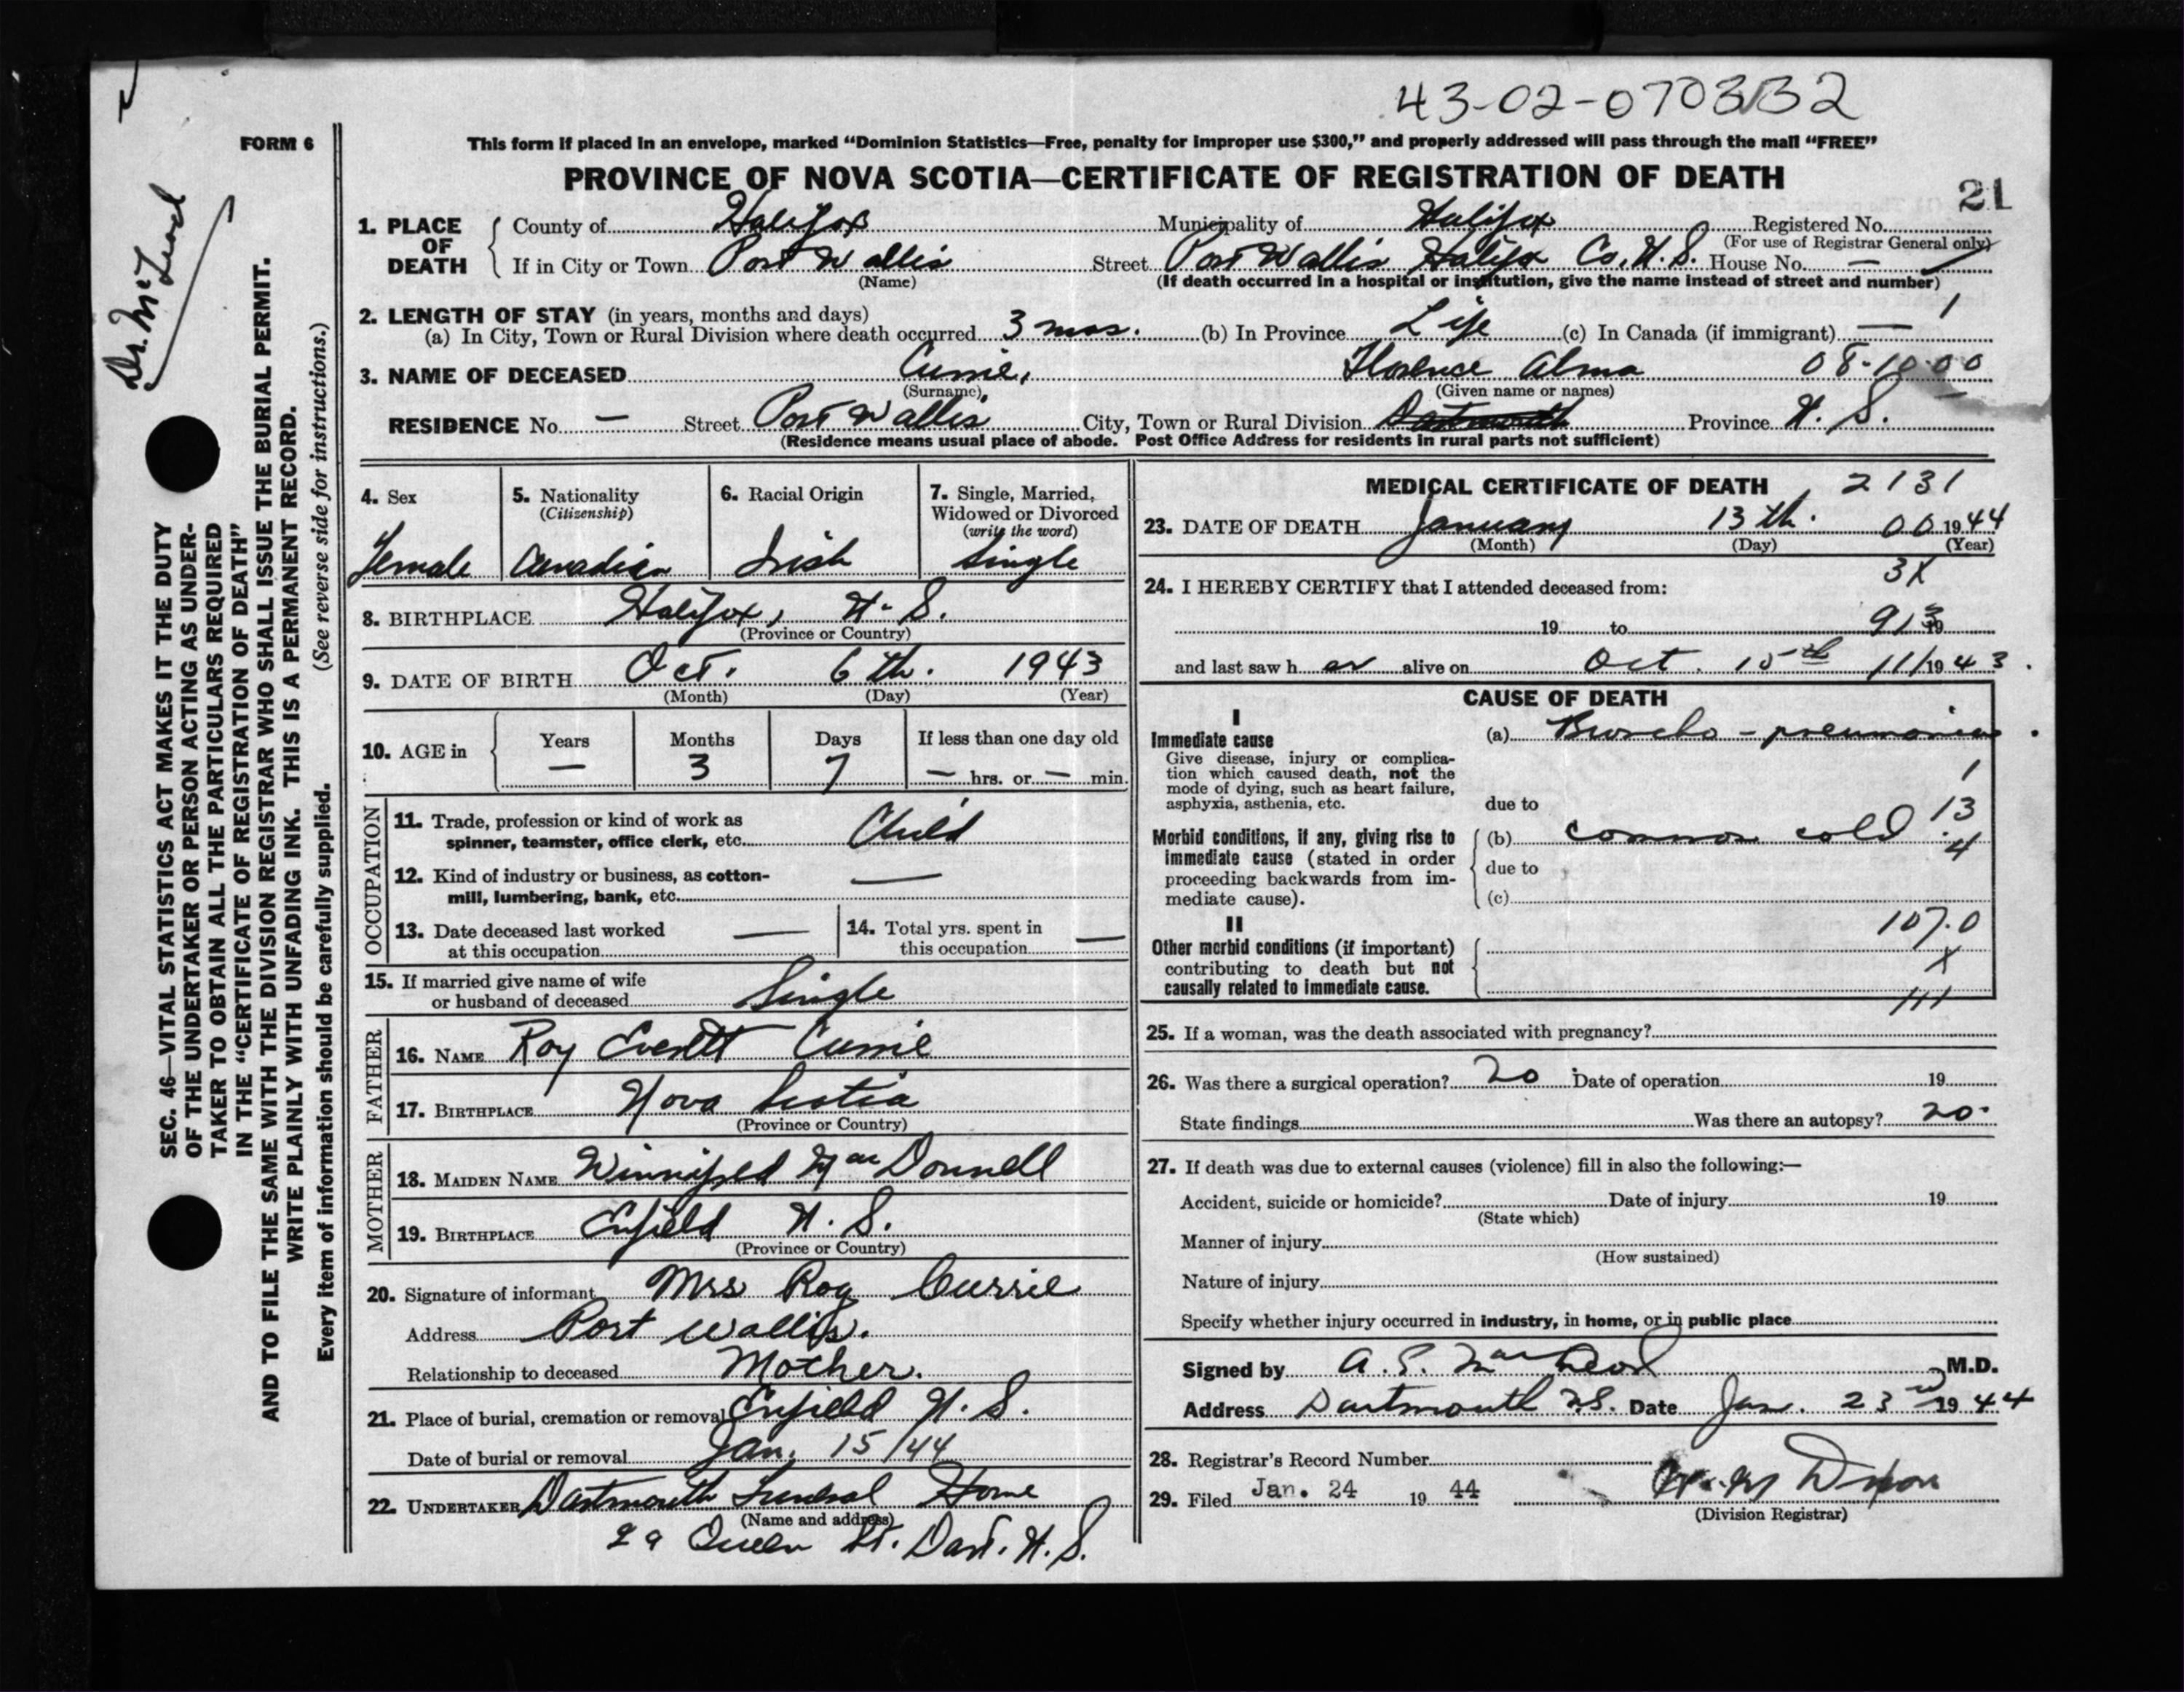 43-02-070332
FORM 6
This form if placed in an envelope, marked “Dominion Statistics—Free, penalty for improper use $300,” and properly addressed will pass through the mail “FREE”
PROVINCE OF NOVA SCOTIA—CERTIFICATE OF REGISTRATION OF DEATH
21
Dr. McLeod
SEC. 46—VITAL STATISTICS ACT MAKES IT THE DUTY
OF THE UNDERTAKER OR PERSON ACTING AS UNDER-
TAKER TO OBTAIN ALL THE PARTICULARS REQUIRED
IN THE “CERTIFICATE OF REGISTRATION OF DEATH”
AND TO FILE THE SAME WITH THE DIVISION REGISTRAR WHO SHALL ISSUE THE BURIAL PERMIT.
WRITE PLAINLY WITH UNFADING INK. THIS IS A PERMANENT RECORD.
Every item of information should be carefully supplied. (See reverse side for instructions.)
1. PLACE OF DEATH County of Halifax Municipality of Halifax Registered No.
(For use of Registrar General only)
If in City or Town Port Wallis Street Port Wallis Halifax Co. N.S. House No. —
(Name) (If death occurred in a hospital or institution, give the name instead of street and number)
2. LENGTH OF STAY (in years, months and days) 1
(a) In City, Town or Rural Division where death occurred 3 mos. (b) In Province Life (c) In Canada (if immigrant) —
3. NAME OF DECEASED Currie, Florence Alma 08-10-00
(Surname) (Given name or names)
RESIDENCE No. — Street Port Wallis City, Town or Rural Division Dartmouth Province N. S.
(Residence means usual place of abode. Post Office Address for residents in rural parts not sufficient)
4. Sex Female
5. Nationality (Citizenship) Canadian
6. Racial Origin Irish
7. Single, Married, Widowed or Divorced (write the word) Single
8. BIRTHPLACE Halifax, N. S.
(Province or Country)
9. DATE OF BIRTH Oct. 6th. 1943
(Month) (Day) (Year)
10. AGE in Years — Months 3 Days 7 If less than one day old — hrs. or — min.
OCCUPATION
11. Trade, profession or kind of work as
spinner, teamster, office clerk, etc. Child
12. Kind of industry or business, as cotton-
mill, lumbering, bank, etc. —
13. Date deceased last worked
at this occupation —
14. Total yrs. spent in
this occupation —
15. If married give name of wife
or husband of deceased Single
FATHER
16. NAME Roy Everett Currie
17. BIRTHPLACE Nova Scotia
(Province or Country)
MOTHER
18. MAIDEN NAME Winnifred MacDonnell
19. BIRTHPLACE Enfield N. S.
(Province or Country)
20. Signature of informant Mrs Roy Currie
Address Port Wallis.
Relationship to deceased Mother.
21. Place of burial, cremation or removal Enfield N. S.
Date of burial or removal Jan. 15/44
22. UNDERTAKER Dartmouth Funeral Home
(Name and address)
29 Queen St. Dart. N. S.
MEDICAL CERTIFICATE OF DEATH 2131
23. DATE OF DEATH January 13th. 00 1944
(Month) (Day) (Year)
3X
24. I HEREBY CERTIFY that I attended deceased from:
19 to 913 19
and last saw her alive on Oct. 15th 11/1943.
CAUSE OF DEATH
I
Immediate cause (a) Broncho-pneumonia.
Give disease, injury or complica-
tion which caused death, not the
mode of dying, such as heart failure,
asphyxia, asthenia, etc.
1
due to 13
Morbid conditions, if any, giving rise to
immediate cause (stated in order
proceeding backwards from im-
mediate cause).
(b) common cold. 4
due to
(c)
II 107.0
Other morbid conditions (if important)
contributing to death but not
causally related to immediate cause.
X
111
25. If a woman, was the death associated with pregnancy?
26. Was there a surgical operation? no Date of operation 19
State findings Was there an autopsy? no.
27. If death was due to external causes (violence) fill in also the following:—
Accident, suicide or homicide? Date of injury 19
(State which)
Manner of injury
(How sustained)
Nature of injury
Specify whether injury occurred in industry, in home, or in public place
Signed by A. E. MacLeod M.D.
Address Dartmouth N.S. Date Jan. 23rd 1944
28. Registrar's Record Number
29. Filed Jan. 24 19 44
(Division Registrar)